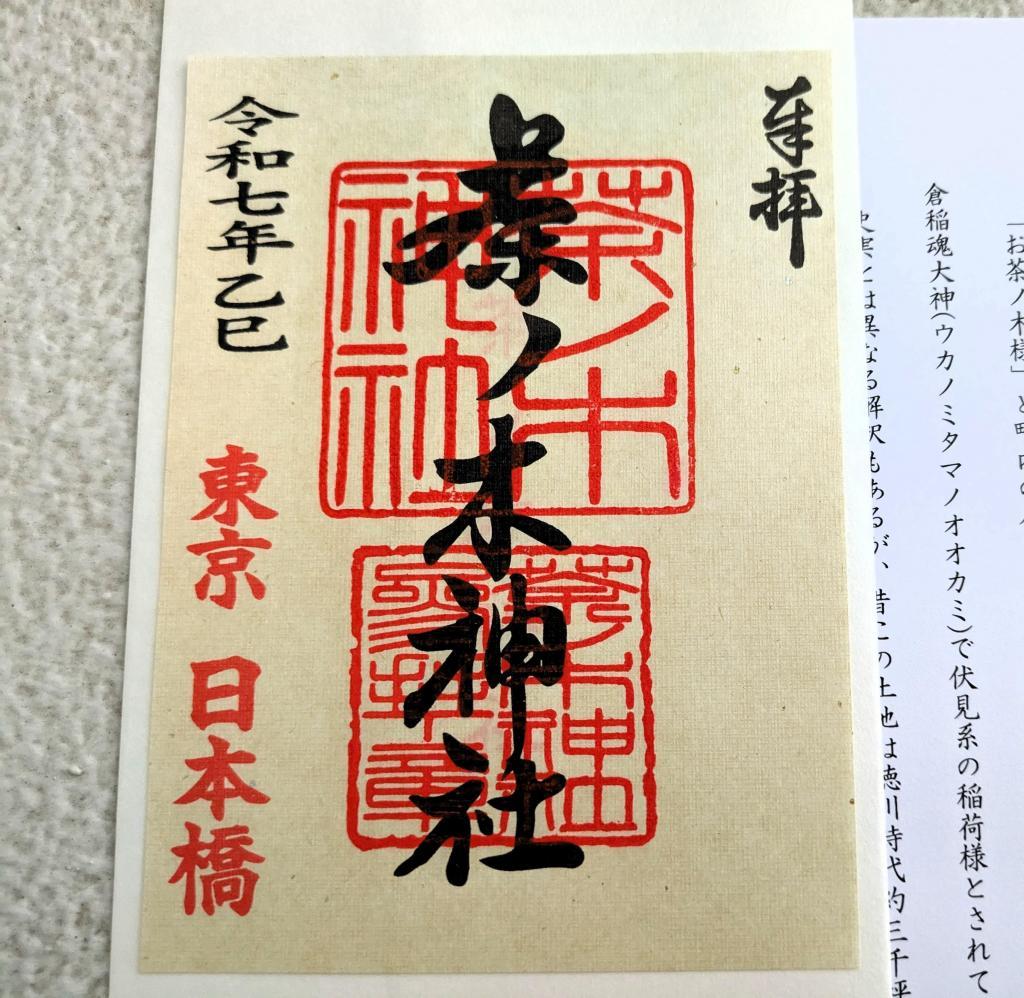 「お茶ノ木様」と町内の人
倉稲魂大神(ウカノミタマノオオカミ)で伏見系の稲荷様とされて
史実とは異なる解釈もあるが、昔この土地は徳川時代約三千坪
奉拝
茶ノ木神社
茶ノ木
神社
令和七年乙巳
東京 日本橋